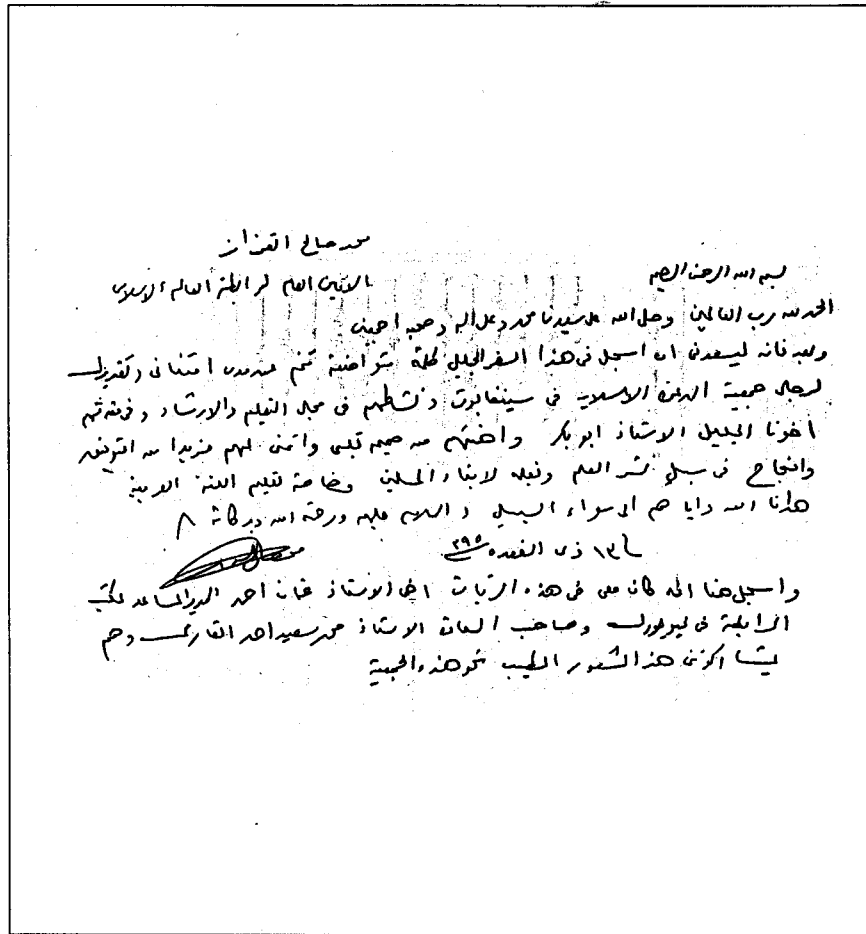 محمد صالح القزاز
الامين العام لرابطة العالم الاسلامى
بسم الله الرحمن الرحيم
الحمد لله رب العالمين وصلى الله على سيدنا محمد وعلى اله وصحبه اجمعين
وبعد فانه ليسعدنى ان اسجل فى هذا السفر الجليل كلمة متواضعة تنم عن مدى امتنانى وتقديرى
لرجال جمعية الدعوة الاسلامية فى سينغابورة ونشاطهم فى مجال التعليم والارشاد وفى
اخونا الجليل الاستاذ ابو بكر واهنئهم من صميم قلبى واتمنى لهم مزيدا من التوفيق
والنجاح فى سبيل نشر العلم لابناء المسلمين وخاصة تعليم اللغة العربية
هدانا الله وايا هم الى سواء السبيل والسلام عليكم ورحمة الله وبركاته
١٣ ذى القعدة ٣٩٥
واسجل هنا انه كان معى فى هذه الزيارة اخى الاستاذ احمد المدير المساعد لمكتب
الرابطة فى نيويورك وصاحب السعادة الاستاذ محمد سعيد احمد وهم
يشاركوننى هذا الشعور الطيب نحو هذه الجمعية